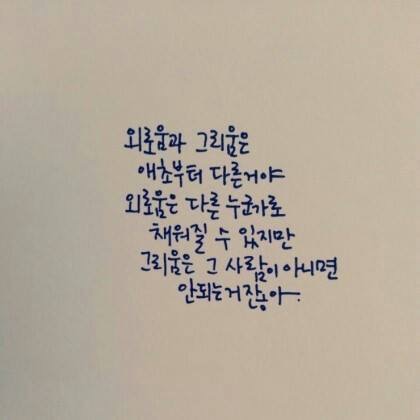 외로움과 그리움은
애초부터 다른거야
외로움은 다른 누군가로
채워질 수 있지만
그리움은 그 사람이 아니면
안되는거잖아.